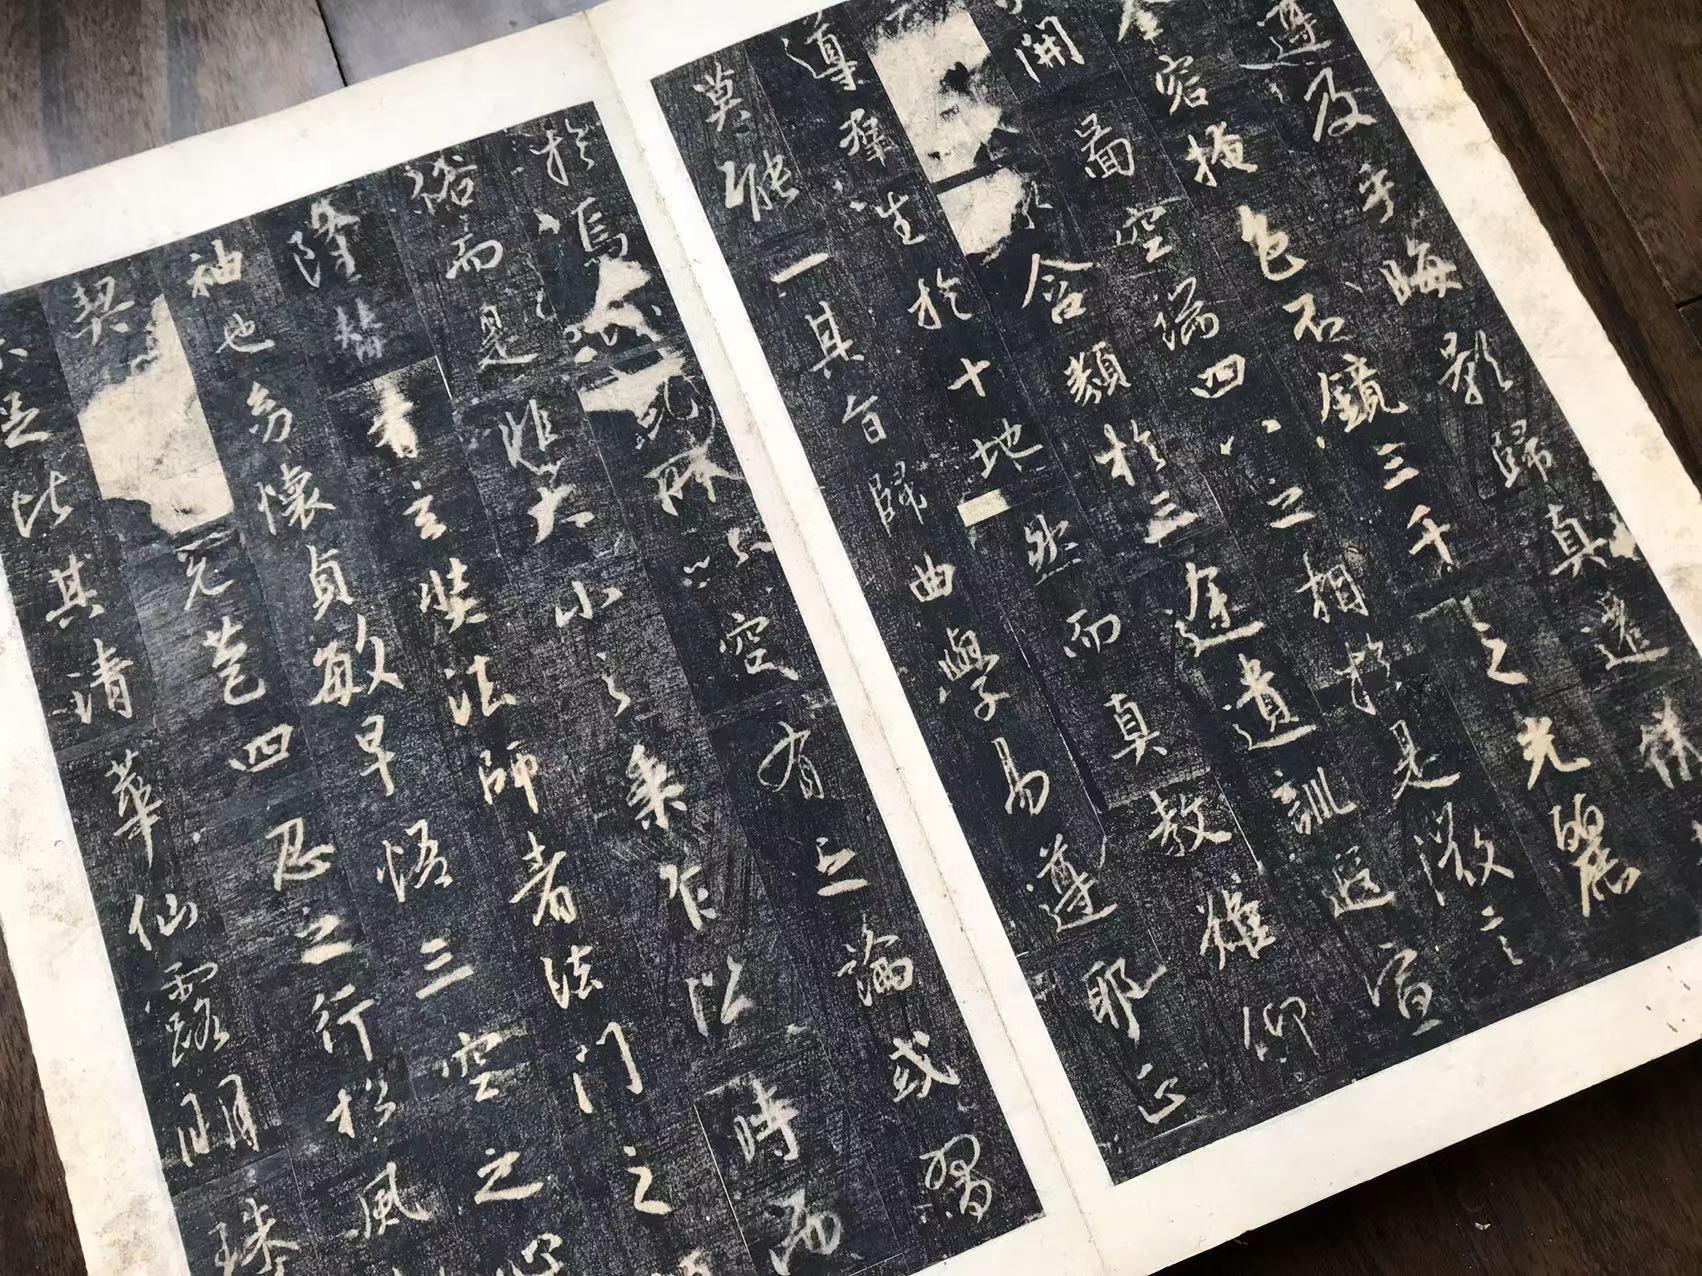 遵及乎晦影歸真遷儀
金容掩色不鏡三千之光麗
開圖空端四八之相於是微言
含類於三途遺訓遐宣
導群生於十地然而真教難仰
莫能一其旨歸曲學易遵耶正
於焉所以空有之論或習
俗而是非大小之乘乍沿時而
隆替有玄奘法師者法門之
袖也幼懷貞敏早悟三空之心
契先苞四忍之行松風
足比其清華仙露明珠